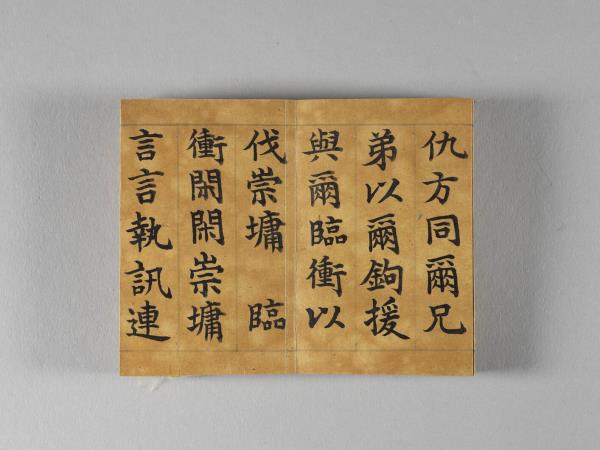 仇方同爾兄
弟以爾鉤援
與爾臨衝以
伐崇墉　臨
衝閑閑崇墉
言言執訊連